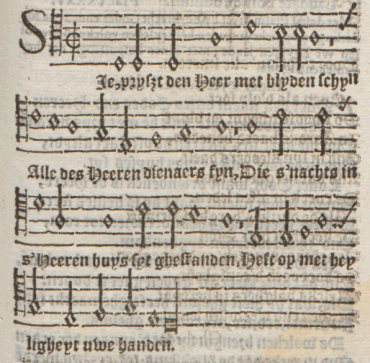 SJe, pryszt den Heer met blyden schyn
Alle des Heeren dienaers syn, Die s'nachts in
s'Heeren huys syt ghestanden, Heft op met hey
ligheyt uwe handen.